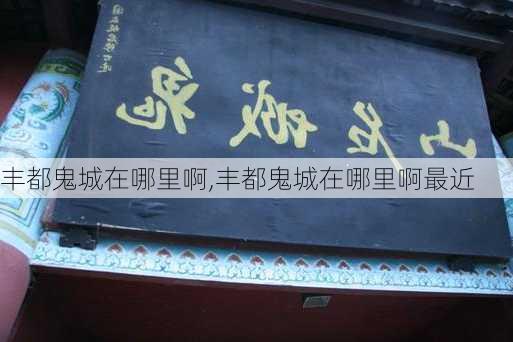 山名城鬼
丰都鬼城在哪里啊,丰都鬼城在哪里啊最近